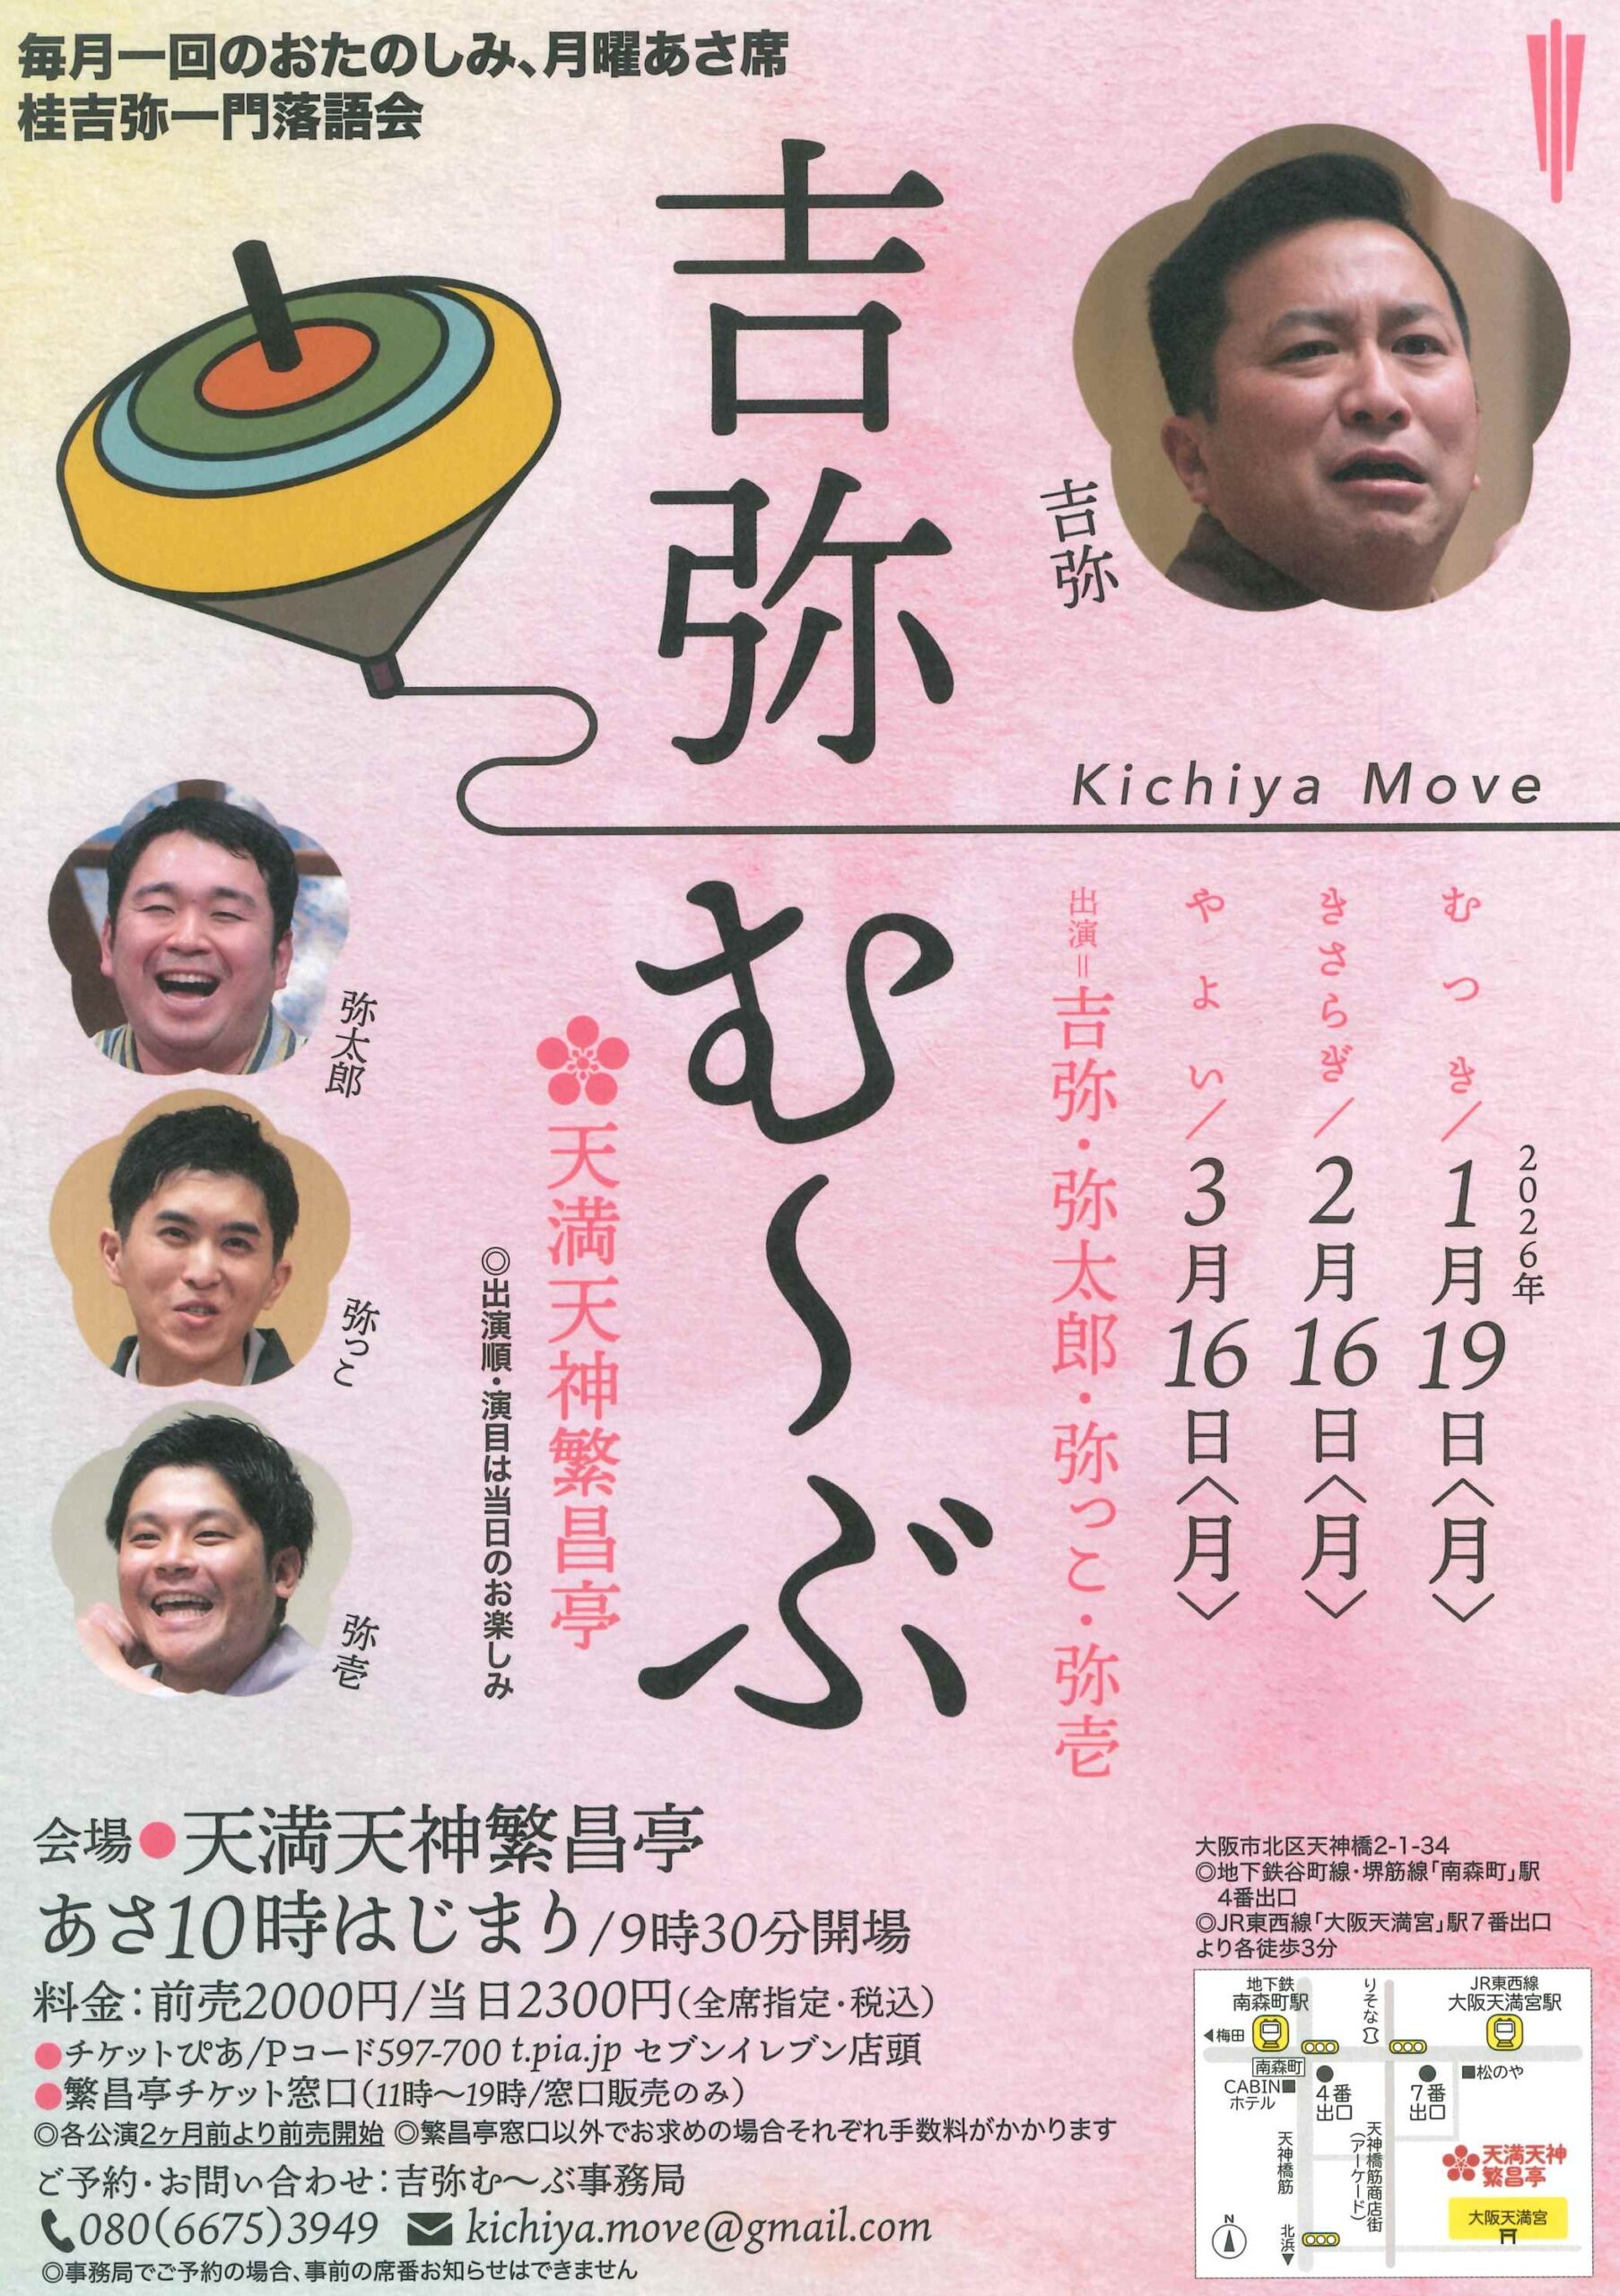 毎月一回のおたのしみ、月曜あさ席
桂吉弥一門落語会
吉弥む〜ぶ
吉弥
Kichiya Move
2026年
むつき/1月19日〈月〉
きさらぎ/2月16日〈月〉
やよい/3月16日〈月〉
出演=吉弥・弥太郎・弥っこ・弥壱
天満天神繁昌亭
◎出演順・演目は当日のお楽しみ
弥太郎
弥っこ
弥壱
会場●天満天神繁昌亭
あさ10時はじまり/9時30分開場
料金:前売2000円/当日2300円(全席指定・税込)
●チケットぴあ/Pコード597-700 t.pia.jp セブンイレブン店頭
●繁昌亭チケット窓口(11時〜19時/窓口販売のみ)
◎各公演2ヶ月前より前売開始 ◎繁昌亭窓口以外でお求めの場合それぞれ手数料がかかります
ご予約・お問い合わせ:吉弥む〜ぶ事務局
080(6675)3949 kichiya.move@gmail.com
◎事務局でご予約の場合、事前の席番お知らせはできません
大阪市北区天神橋2-1-34
◎地下鉄谷町線・堺筋線「南森町」駅
4番出口
◎JR東西線「大阪天満宮」駅7番出口
より各徒歩3分
地下鉄
南森町駅
りそな
JR東西線
大阪天満宮駅
◀梅田
南森町
■松のや
CABIN■
ホテル
4番
出口
7番
出口
天神橋筋
天神橋筋商店街
(アーケード)
天満天神
繁昌亭
大阪天満宮
N
北浜▼